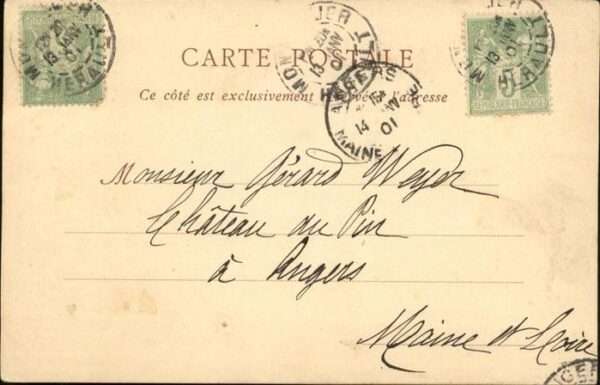 CARTE POSTALE
Ce côté est exclusivement réservé à l'adresse
MONT
HÉRAULT
13 JANV
01
ANGERS
14 JANV
01
MAINE
RÉPUBLIQUE FRANÇAISE
Monsieur Gérard Weyer
Château du Pin
à Angers
Maine et Loire